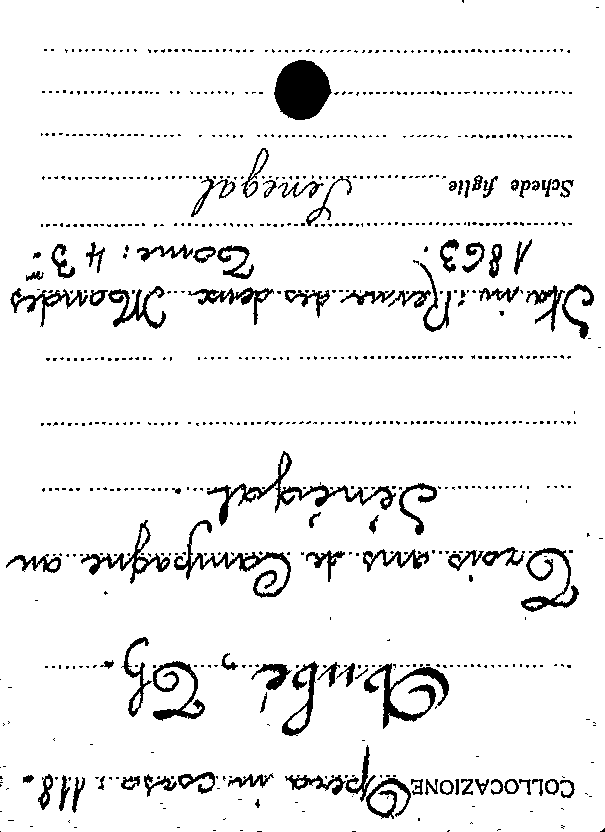 COLLOCAZIONE Opera in corso: 118.
Aubé, Th.
Trois ans de Campagne au
Sénégal.
Sta in: Revue des deux Mondes
1863. Tome: 43.m
Schede figlie Senegal